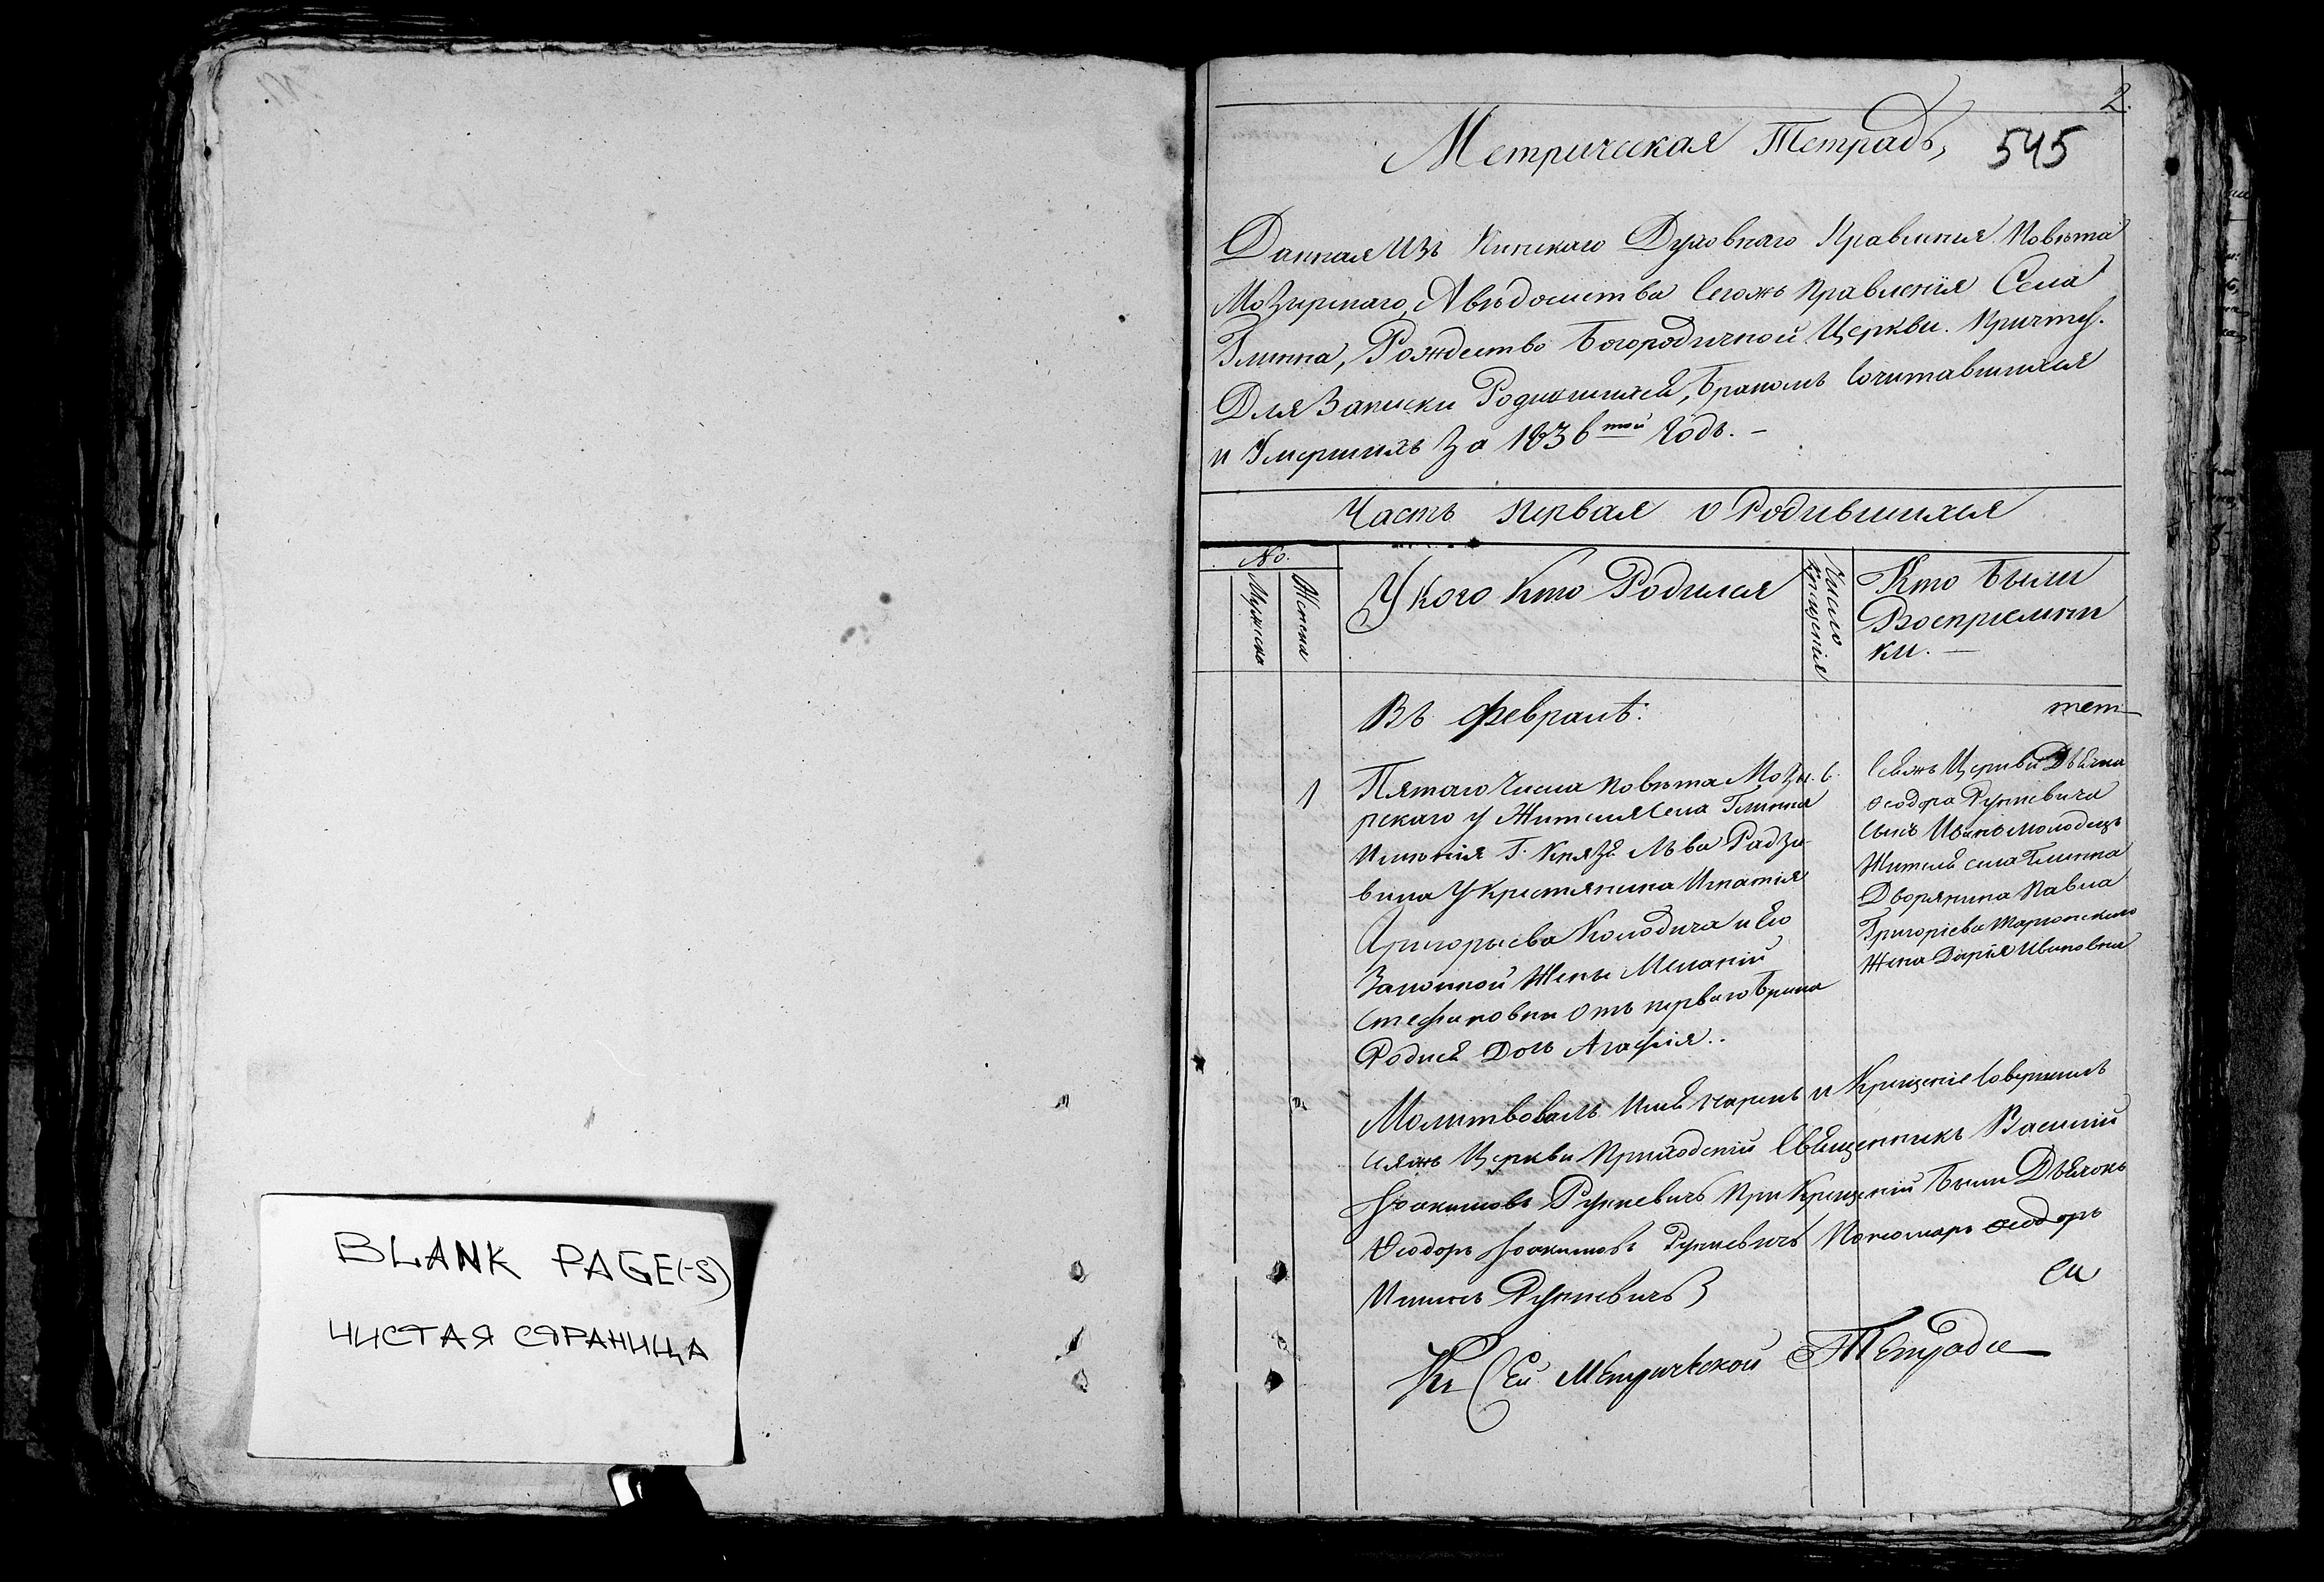 BLANK PAGE(-S)
ЧИСТАЯ СТРАНИЦА
2.
Метрическая Тетрадь,
545
Данная Изъ Пинскаго Духовнаго Правления Повѣта
Мозирскаго, Авѣдомства Сегожъ Правленія Села
Глинна, Рождество Богородичной Церкви. Причту.
Для Записки Родившихся, Бракомъ Сочитавшихся
и Умершихъ За 1836 той Годъ. -
Часть первая о Родившихся
No.
Мужеска
Женска
У кого Кто Родился
Число Крещенія
Кто Были
Восприемни
ки. —
Въ Февралѣ:
1
Пятаго Числа Повѣта Мози
рскаго у Жителя Села Глинна
Имѣнія Г. Князя Льва Радзи
вила У Крестянина Игнатія
Григорьева Колодича и Его
Законной Жены Меланіи
Стефановны Отъ перваго Брака
Родися Дочь Агафія..
6.
Сеяжъ Церкви Дьячка
Ѳеодора Рункевича
Сынъ Иванъ молодецъ
Житель села Глинна
Дворянина Павла
Григоріева
Жена Дарія Ивановна
Молитвовалъ Имя нарекъ и Крещеніе Совершилъ
сеяжъ Церкви Приходскій Священникъ Василій
Іоакимовъ Рункевичъ При Крещеніи Были Дьячокъ
Ѳеодоръ Іоакимовъ Рункевичъ Пономарь Ѳеодоръ
Рункевичъ
Къ Сей Метрической Тетради